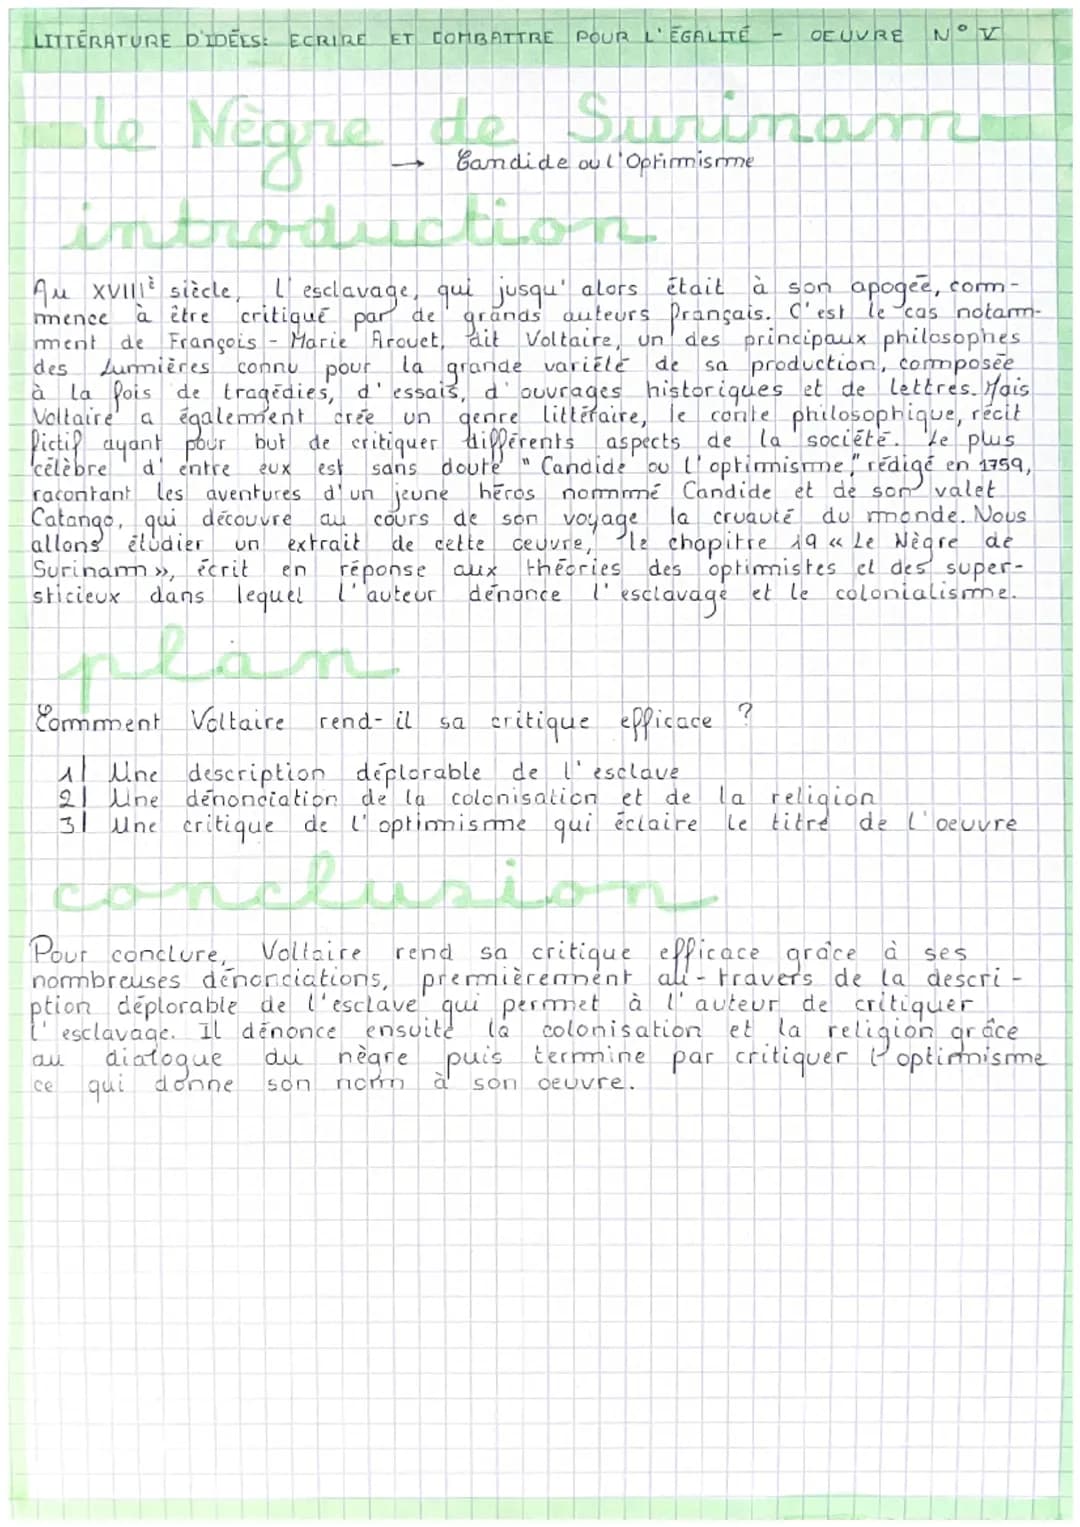 LITTÉRATURE D'IDÉES: ECRIRE ET COMBATTRE POUR L'ÉGALITÉ - OEUVRE N° V
le Nègre de Surinam
→ Candide ou l'Optimisme
introduction
Au XVIIIè siècle, l'esclavage, qui jusqu'alors était à son apogée, com-
mence à être critiqué par de grands auteurs français. C'est le cas notam-
ment de François-Marie Arouet, dit Voltaire, un des principaux philosophes
des Lumières connu pour la grande variété de sa production, composée
à la fois de tragédies, d'essais, d'ouvrages historiques et de lettres. Mais
Voltaire a également crée un genre littéraire, le conte philosophique, récit
fictif ayant pour but de critiquer différents aspects de la société. Le plus
célèbre d'entre eux est sans doute "Candide ou l'optimisme", rédigé en 1759,
racontant les aventures d'un jeune héros nommé Candide et de son valet
Catango, qui découvre au cours de son voyage la cruauté du monde. Nous
allons étudier un extrait de cette oeuvre, le chapitre 19 « Le Nègre de
Surinam », écrit en réponse aux théories des optimistes et des super-
sticieux dans lequel l'auteur dénonce l'esclavage et le colonialisme.
plan
Comment Voltaire rend-il sa critique efficace ?
1| Une description déplorable de l'esclave
2| Une dénonciation de la colonisation et de la religion
3| Une critique de l'optimisme qui éclaire le titre de l'oeuvre
conclusion
Pour conclure, Voltaire rend sa critique efficace grâce à ses
nombreuses dénonciations, premièrement au-travers de la descri-
ption déplorable de l'esclave qui permet à l'auteur de critiquer
l'esclavage. Il dénonce ensuite la colonisation et la religion grâce
au dialogue du nègre puis termine par critiquer l'optimisme
ce qui donne son nom à son oeuvre.